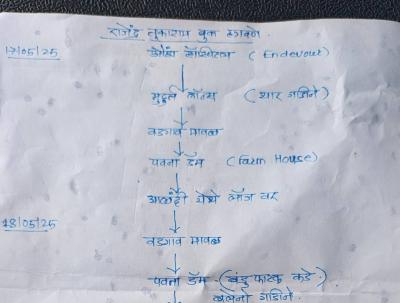 राजेंद्र तुकाराम बुक हगवणे.
17/05/25
औंध हॉस्पिटल (Endevour)
मुहूर्त लॉन्स (थार गाडीने)
वडगाव मावळ
पवना डॅम (Farm House)
आळंदी येथे लॉज वर
18/05/25
वडगाव मावळ
पवना डॅम (बंडु फाटक कडे)
बलेनो गाडीने.